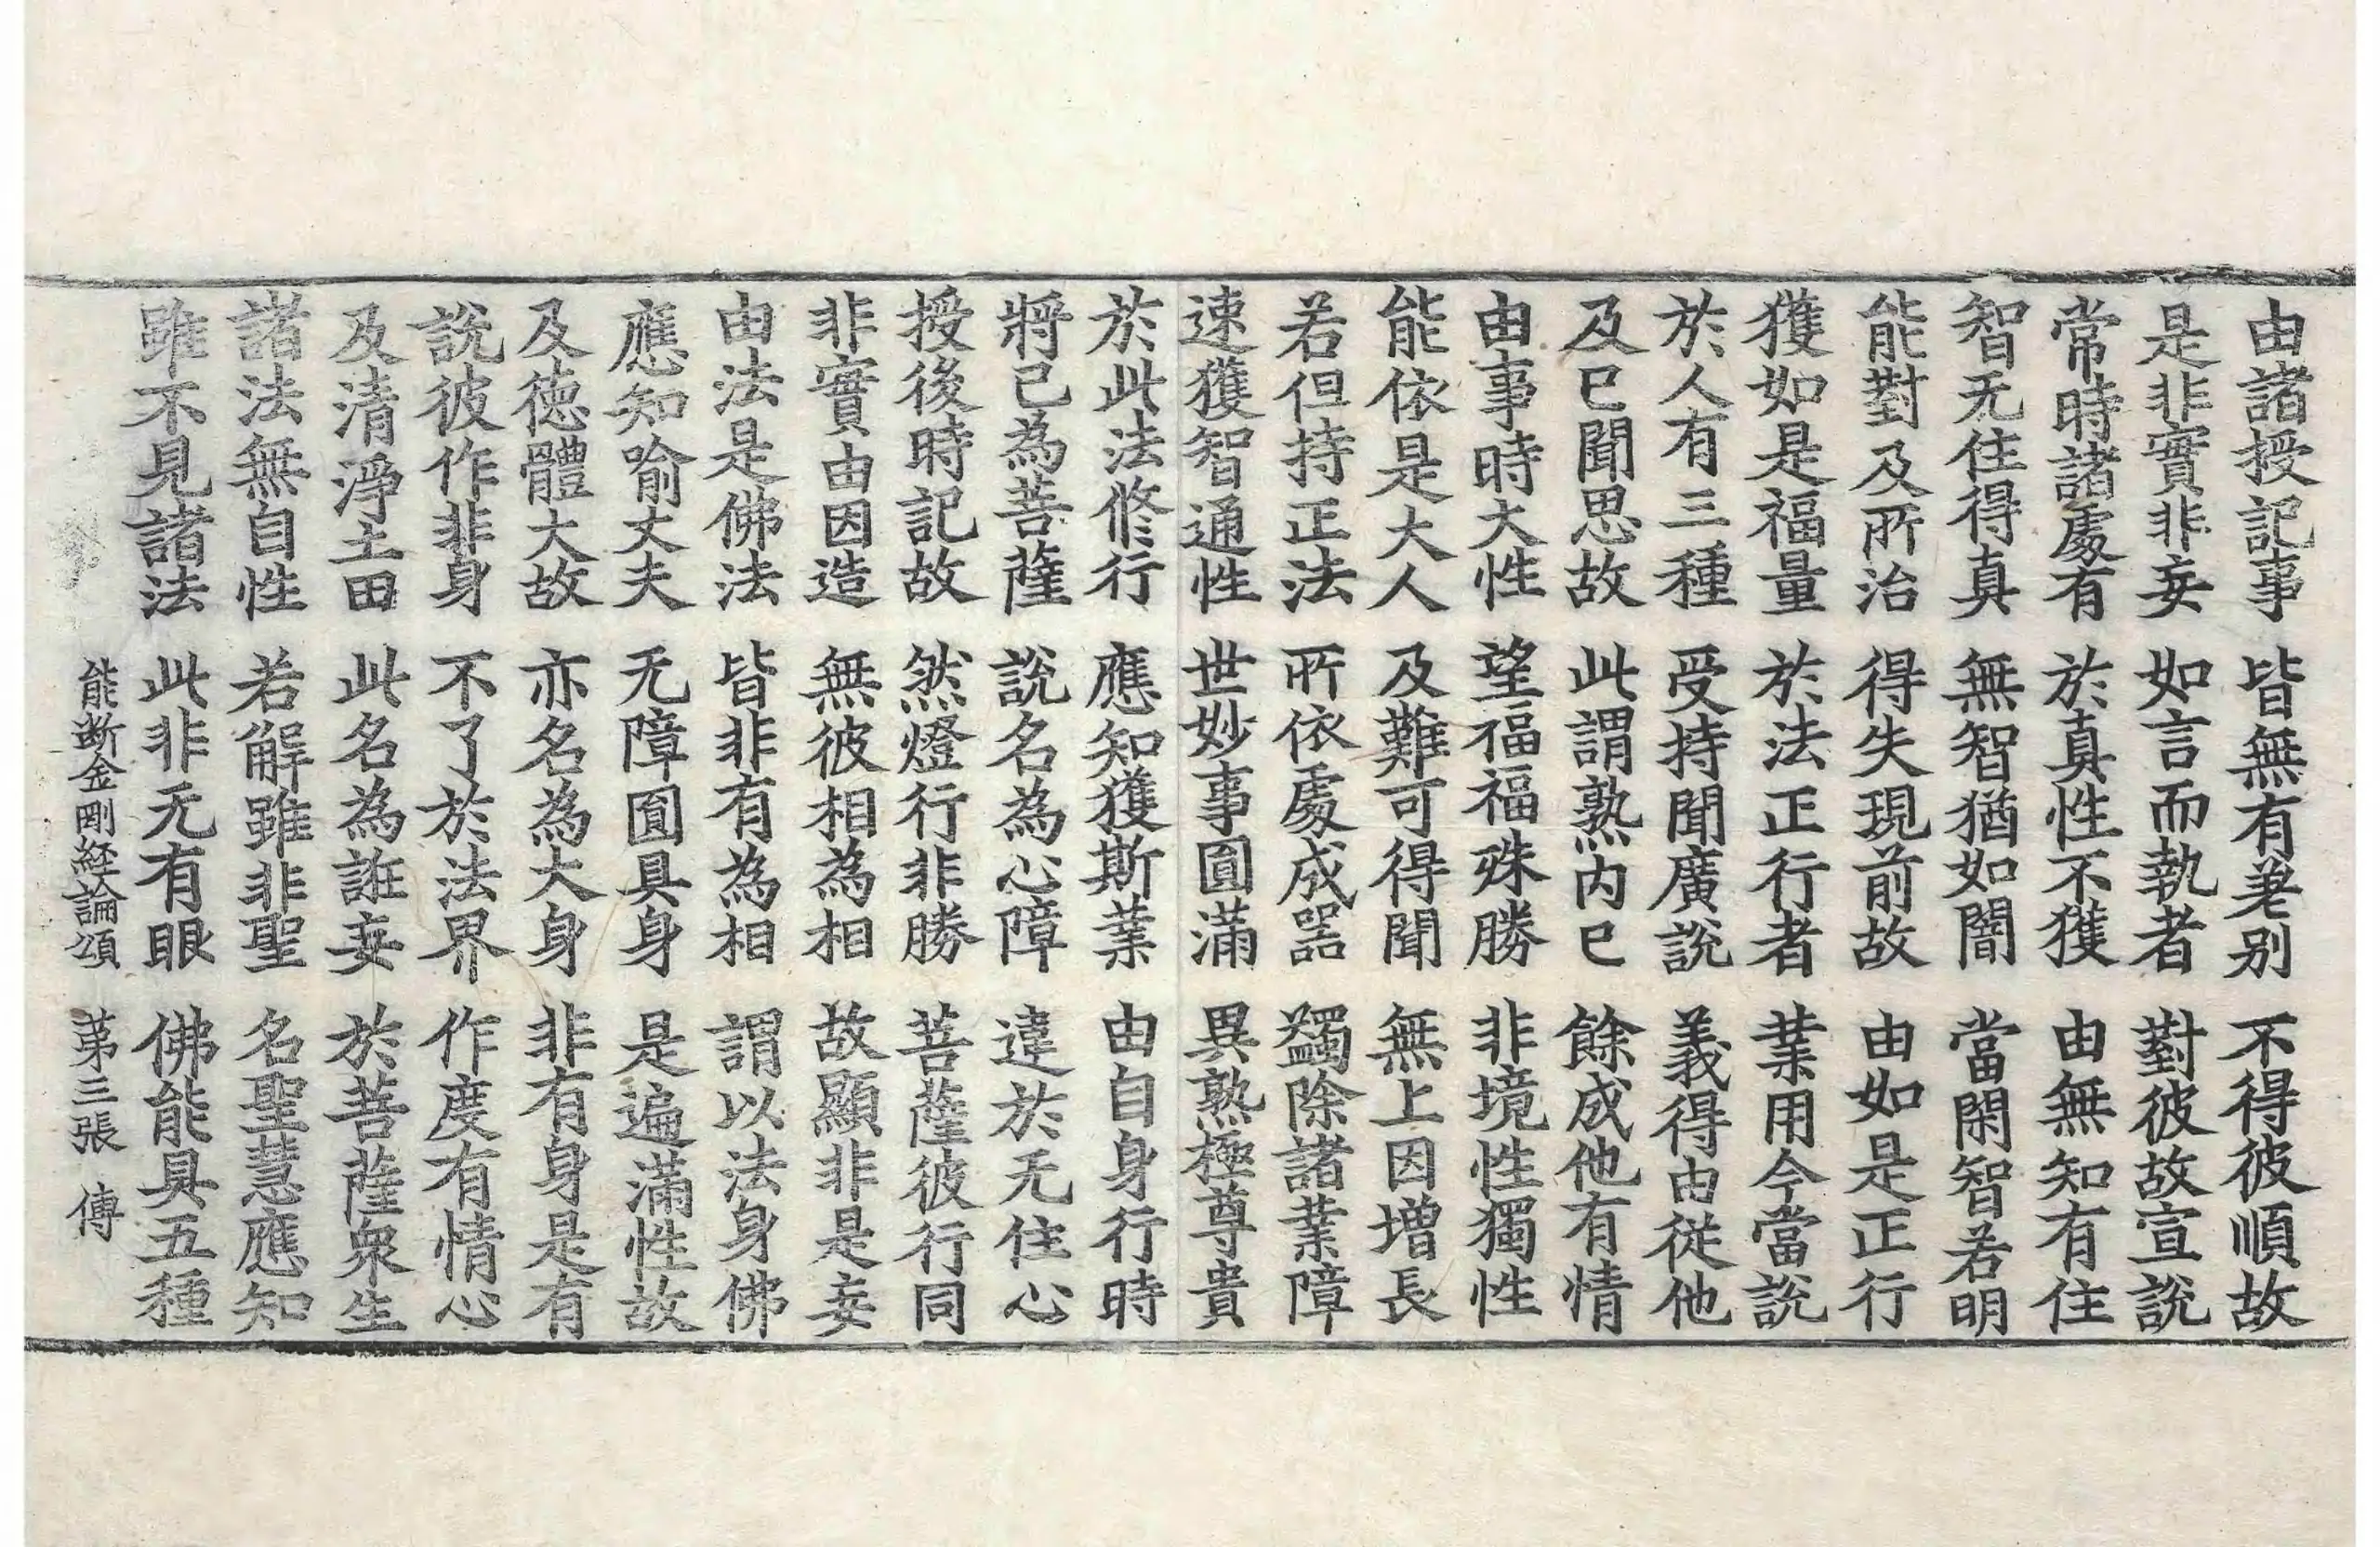 由諸授記事　皆無有差别　不得彼順故
是非實非妄　如言而執者　對彼故宣說
常時諸處有　於真性不獲　由無知有住
智无住得真　無智猶如闇　當閑智若明
能對及所治　得失現前故　由如是正行
獲如是福量　於法正行者　業用今當說
於人有三種　受持聞廣說　義得由從他
及已聞思故　此謂熟内已　餘成他有情
由事時大性　望福福殊勝　非境性獨性
能依是大人　及難可得聞　無上因增長
若但持正法　所依處成器　蠲除諸業障
速獲智通性　世妙事圓滿　異熟極尊貴
於此法修行　應知獲斯業　由自身行時
將己為菩薩　說名為心障　違於无住心
授後時記故　然燈行非勝　菩薩彼行同
非實由因造　無彼相為相　故顯非是妄
由法是佛法　皆非有為相　謂以法身佛
應知喻丈夫　无障圓具身　是遍滿性故
及德體大故　亦名為大身　非有身是有
說彼作非身　不了於法界　作度有情心
及清淨土田　此名為誑妄　於菩薩衆生
諸法無自性　若解雖非聖　名聖慧應知
雖不見諸法　此非无有眼　佛能具五種
能断金剛経論頌　第三張　傅